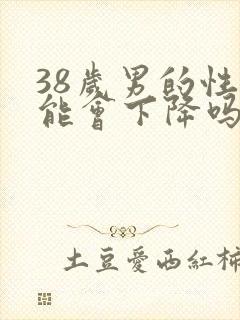 38歲男的性
能會下降嗎
土豆愛西紅柿